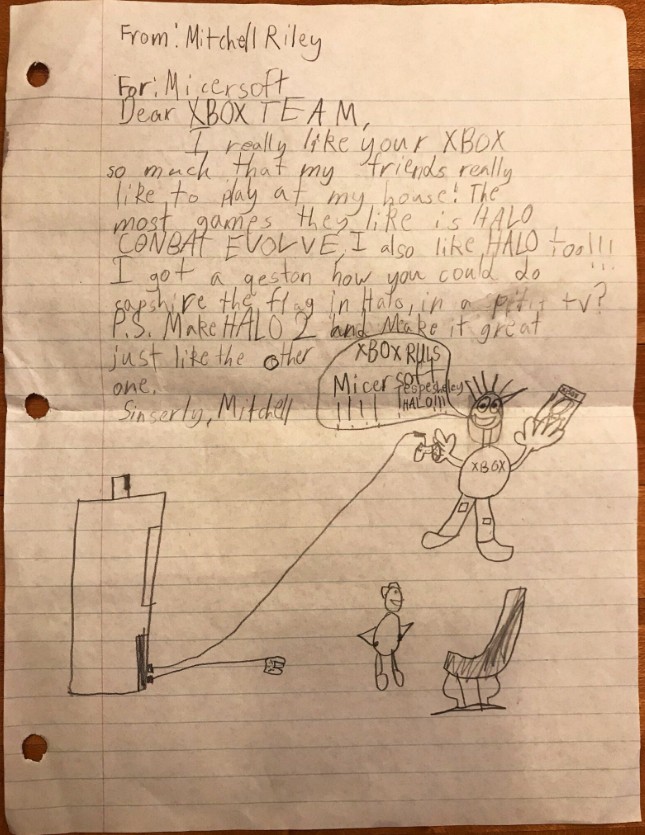 From: Mitchell Riley
For: Micersoft
Dear XBOX TEAM,
I really like your XBOX
so much that my friends really
like to play at my house! The
most games they like is HALO
CONBAT EVOLVE, I also like HALO too!!!
I got a geston how you could do !!!
capshire the flag in Halo, in a tv?
P.S. Make HALO 2 and Make it great
just like the other
one.
Sinserly, Mitchell
XBOX RULS
Micersoft
respesheley
!!!! HALO!!!
XBOX